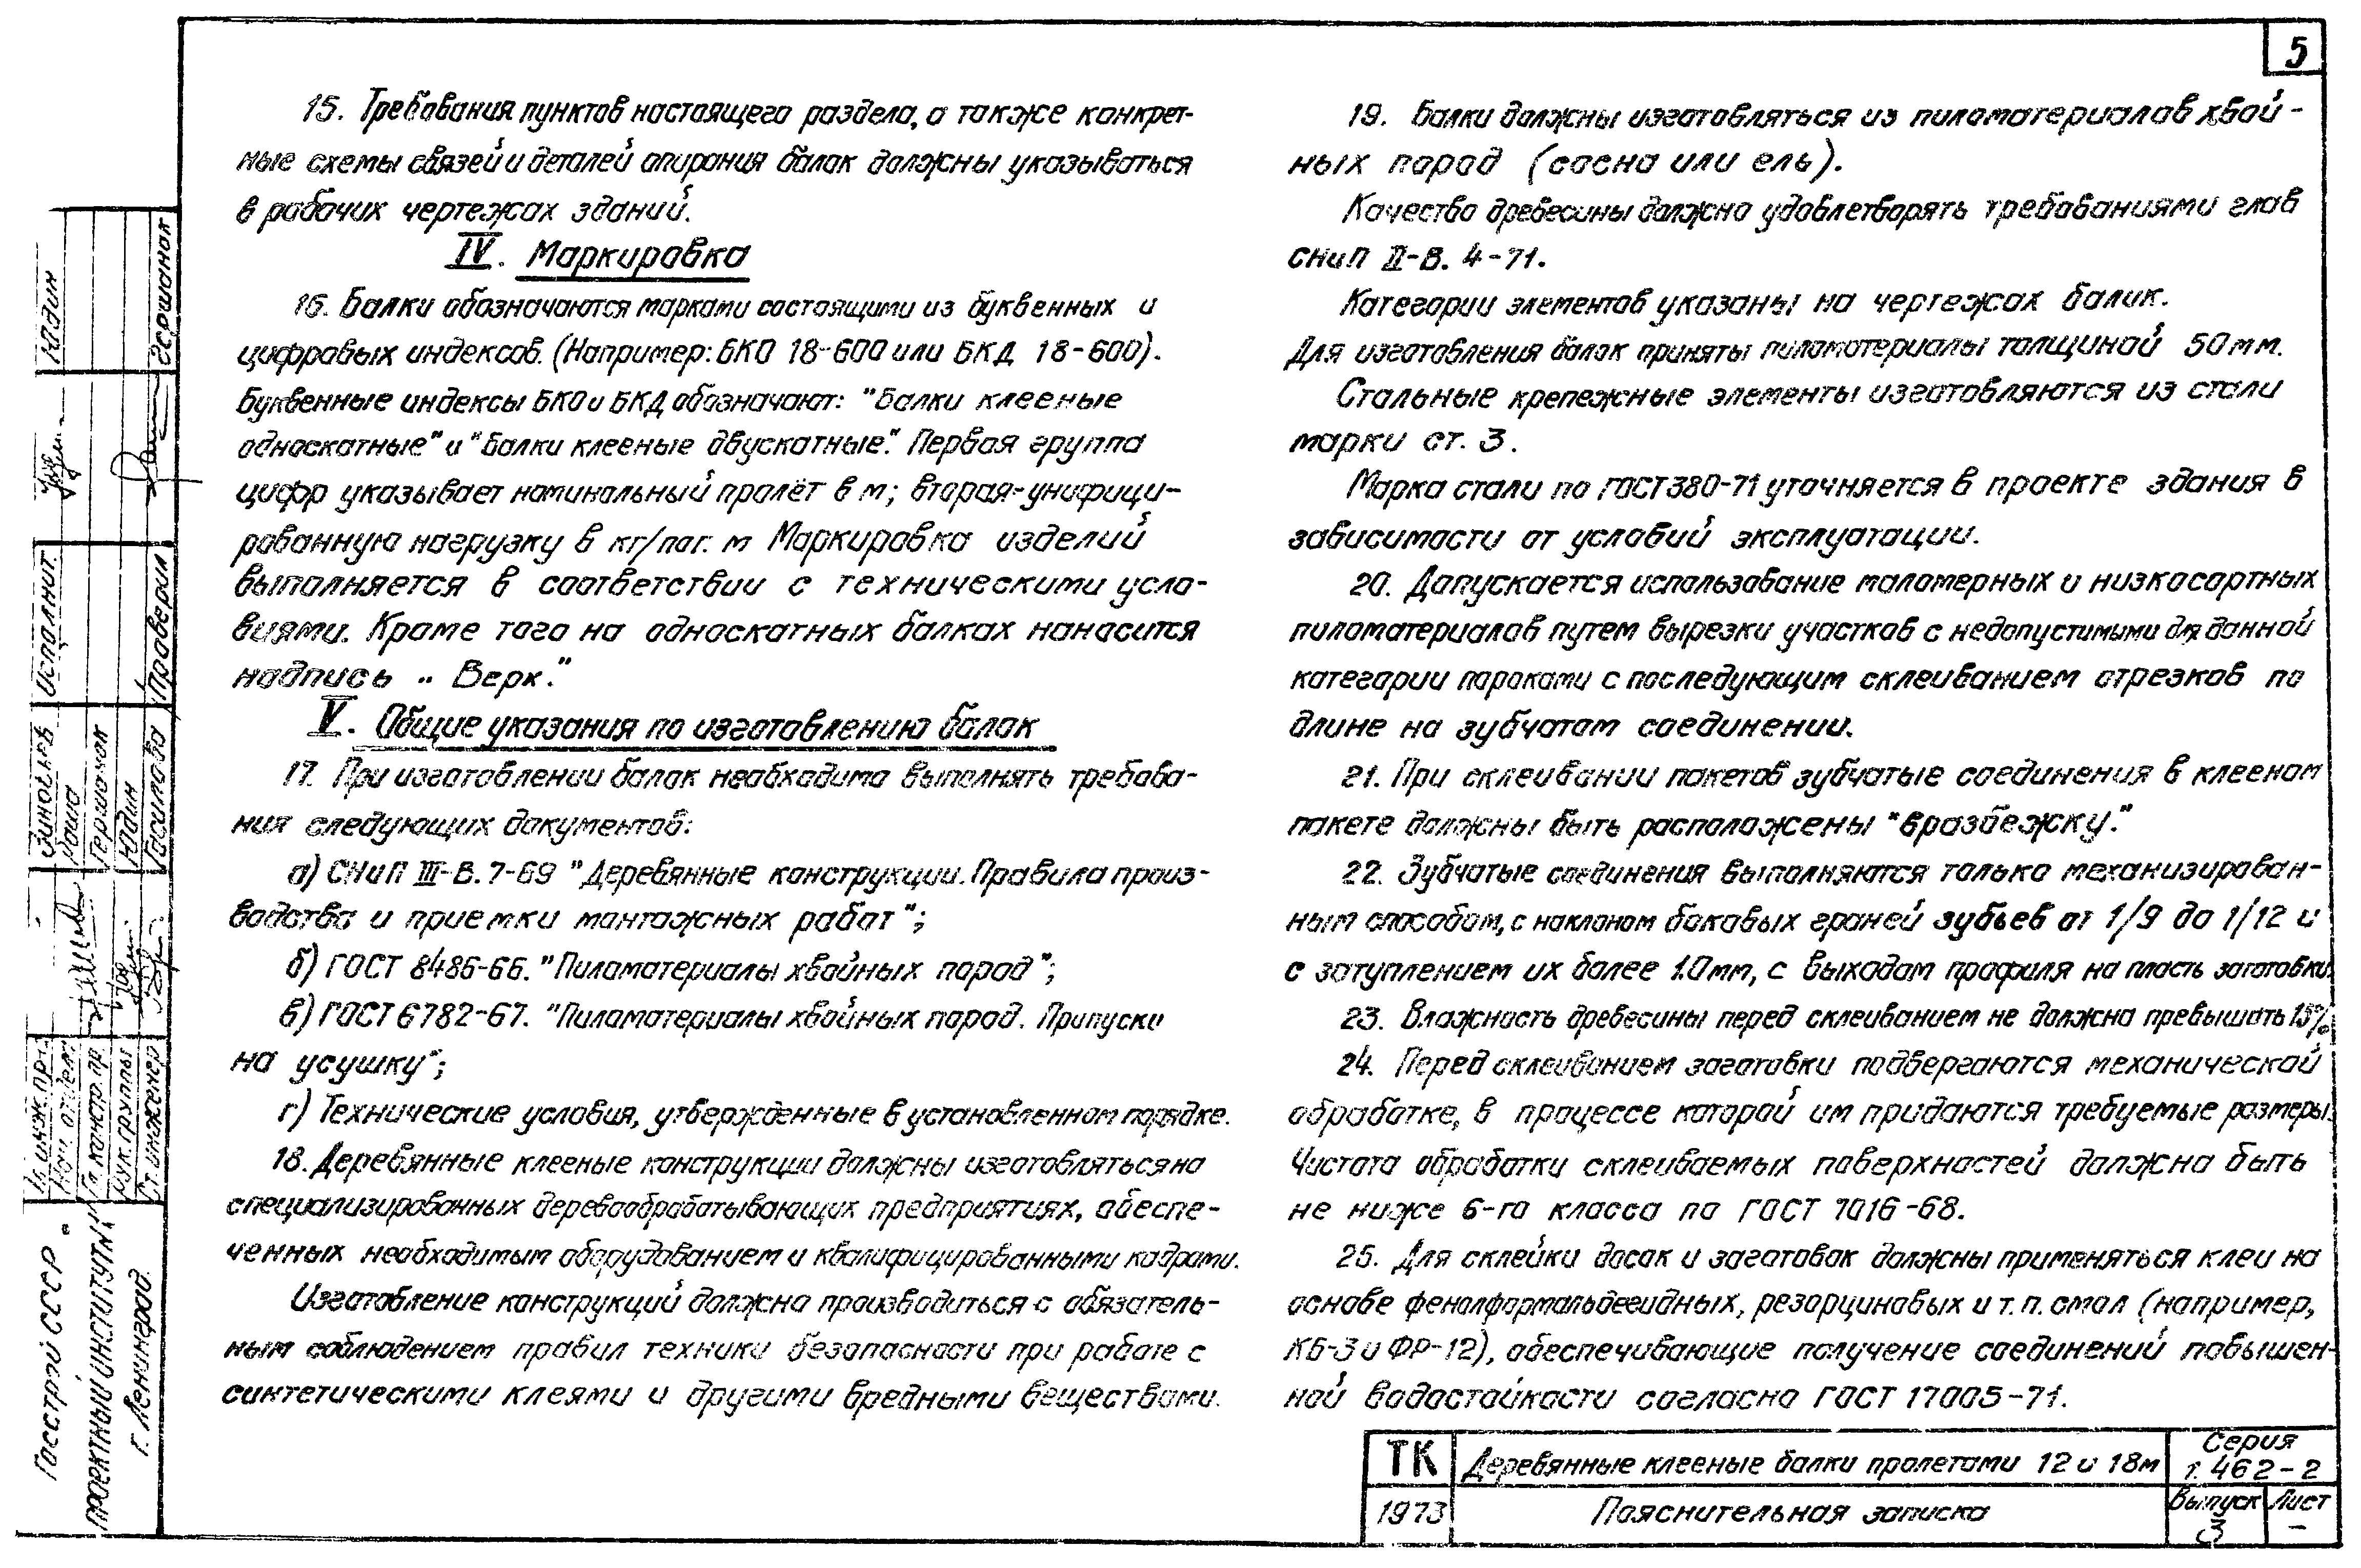 5
15. Требования пунктов настоящего раздела, а также конкрет-
ные схемы связей и деталей опирания балок должны указываться
в рабочих чертежах зданий.
IV. Маркировка
16. Балки обозначаются марками состоящими из буквенных и
цифровых индексов. (Например: БКО 18-600 или БКД 18-600).
Буквенные индексы БКО и БКД обозначают: "Балки клееные
односкатные" и "Балки клееные двускатные". Первая группа
цифр указывает номинальный пролёт в м; вторая-унифици-
рованную нагрузку в кг/пог. м Маркировка изделий
выполняется в соответствии с техническими усло-
виями. Кроме того на односкатных балках наносится
надпись " Верх."
V. Общие указания по изготовлению балок
17. При изготовлении балок необходимо выполнять требова-
ния следующих документов:
а) СНиП III-В. 7-69 "Деревянные конструкции. Правила произ-
водства и приемки монтажных работ";
б) ГОСТ 8486-66. "Пиломатериалы хвойных пород";
в) ГОСТ 6782-67. "Пиломатериалы хвойных пород. Припуски
на усушку";
г) Технические условия, утвержденные в установленном порядке.
18. Деревянные клееные конструкции должны изготовляться на
специализированных деревообрабатывающих предприятиях, обеспе-
ченных необходимым оборудованием и квалифицированными кадрами.
Изготовление конструкций должно производиться с обязатель-
ным соблюдением правил техники безопасности при работе с
синтетическими клеями и другими вредными веществами.
19. Балки должны изготовляться из пиломатериалов хвой-
ных пород (сосна или ель).
Качество древесины должно удовлетворять требованиями глав
СНиП II-В. 4-71.
Категории элементов указаны на чертежах балик.
Для изготовления балок приняты пиломатериалы толщиной 50мм.
Стальные крепежные элементы изготовляются из стали
марки ст. 3.
Марка стали по ГОСТ 380-71 уточняется в проекте здания в
зависимости от условий эксплуатации.
20. Допускается использование маломерных и низкосортных
пиломатериалов путем вырезки участков с недопустимыми для данной
категории пороками с последующим склеиванием отрезков по
длине на зубчатом соединении.
21. При склеивании пакетов зубчатые соединения в клееном
пакете должны быть расположены "вразбежку."
22. Зубчатые соединения выполняются только механизирован-
ным способом, с наклоном боковых граней зубьев от 1/9 до 1/12 и
с затуплением их более 1.0мм, с выходом профиля на пласть заготовки.
23. Влажность древесины перед склеиванием не должна превышать 15%
24. Перед склеиванием заготовки подвергаются механической
обработке, в процессе которой им придаются требуемые размеры.
Чистота обработки склеиваемых поверхностей должна быть
не ниже 6-го класса по ГОСТ 7016-68.
25. Для склейки досок и заготовок должны применяться клеи на
основе фенолформальдегидных, резорциновых и т.п. смол (например,
КБ-3 и ФР-12), обеспечивающие получение соединений повышен-
ной водостойкости согласно ГОСТ 17005-71.
ТК
Деревянные клееные балки пролетами 12 и 18м
Серия
1.462-2
1973
Пояснительная записка
Выпуск
3
Лист
-
Госстрой СССР
ПРОЕКТНЫЙ ИНСТИТУТ №1
г. Ленинград.
Гл. инж. пр.
Нач. отдел.
Гл. констр. пр
Рук. группы
Ст. инженер
Зиновьев
Гершанок
Юдин
Исполнит.
Проверил
Юдин
Гершанок